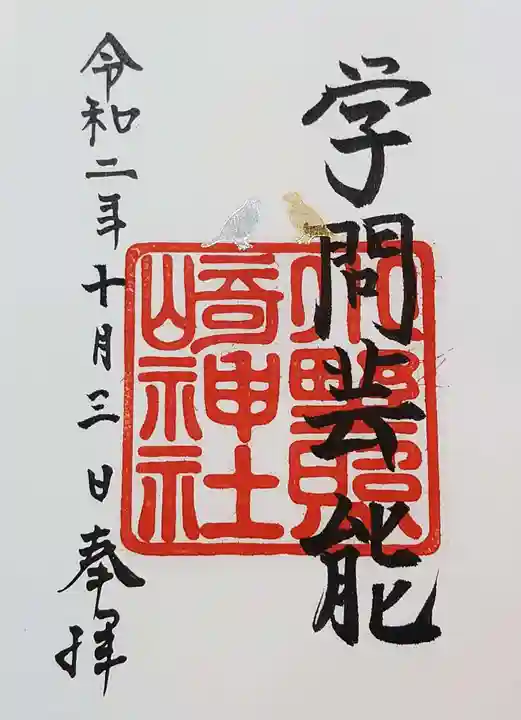 学問芸能
小野照
崎神社
令和二年十月三日奉拝